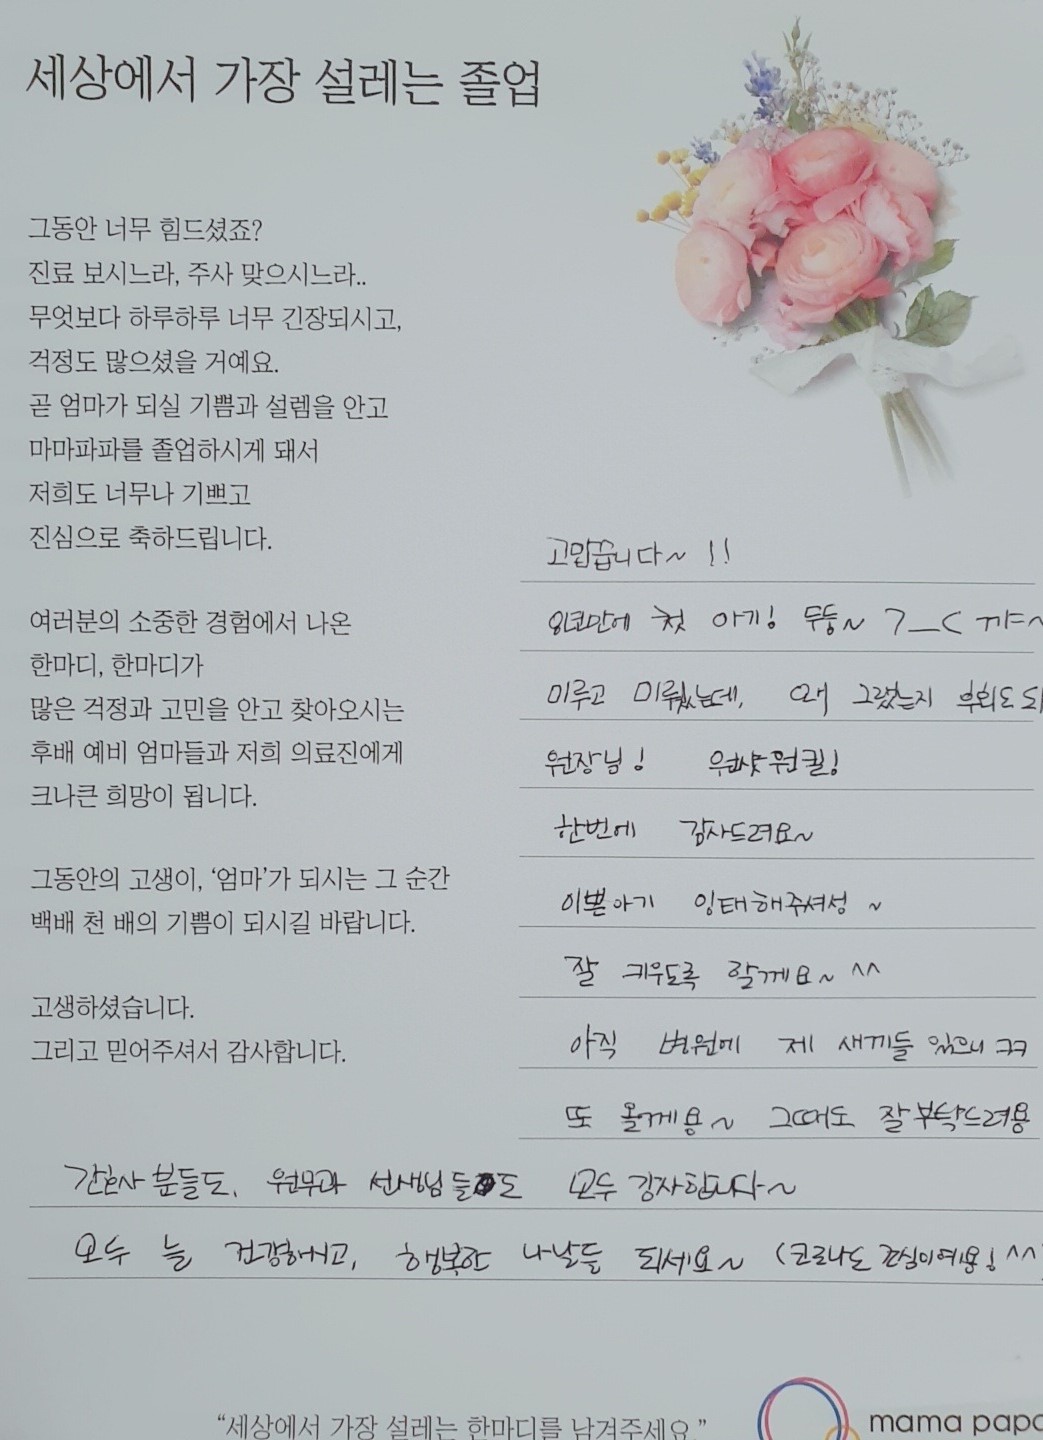 세상에서 가장 설레는 졸업
그동안 너무 힘드셨죠?
진료 보시느라, 주사 맞으시느라..
무엇보다 하루하루 너무 긴장되시고,
걱정도 많으셨을 거예요.
곧 엄마가 되실 기쁨과 설렘을 안고
마마파파를 졸업하시게 돼서
저희도 너무나 기쁘고
진심으로 축하드립니다.
여러분의 소중한 경험에서 나온
한마디, 한마디가
많은 걱정과 고민을 안고 찾아오시는
후배 예비 엄마들과 저희 의료진에게
크나큰 희망이 됩니다.
그동안의 고생이, ‘엄마’가 되시는 그 순간
백배 천 배의 기쁨이 되시길 바랍니다.
고생하셨습니다.
그리고 믿어주셔서 감사합니다.
고맙씁니다~ !!
첫 아기! 두둥~ ㄱ_ㄷ 꺄~
미루고 미뤘는데, 왜 그랬는지 후회도
원장님! 원샷원킬!
한번에 감사드려요~
이쁜아기 잉태해주셔성 ~
잘 키우도록 할께요~ ^^
아직 병원에 제 새끼들 있으니 ㅋㅋ
또 올께용~ 그때도 잘부탁드려용
간호사 분들도, 원무과 선생님들도 모두 감사합니다~
모두 늘 건강하시고, 행복한 나날들 되세요~ (코로나도 조심이예용! ^^)
“세상에서 가장 설레는 한마디를 남겨주세요.”
mama papa